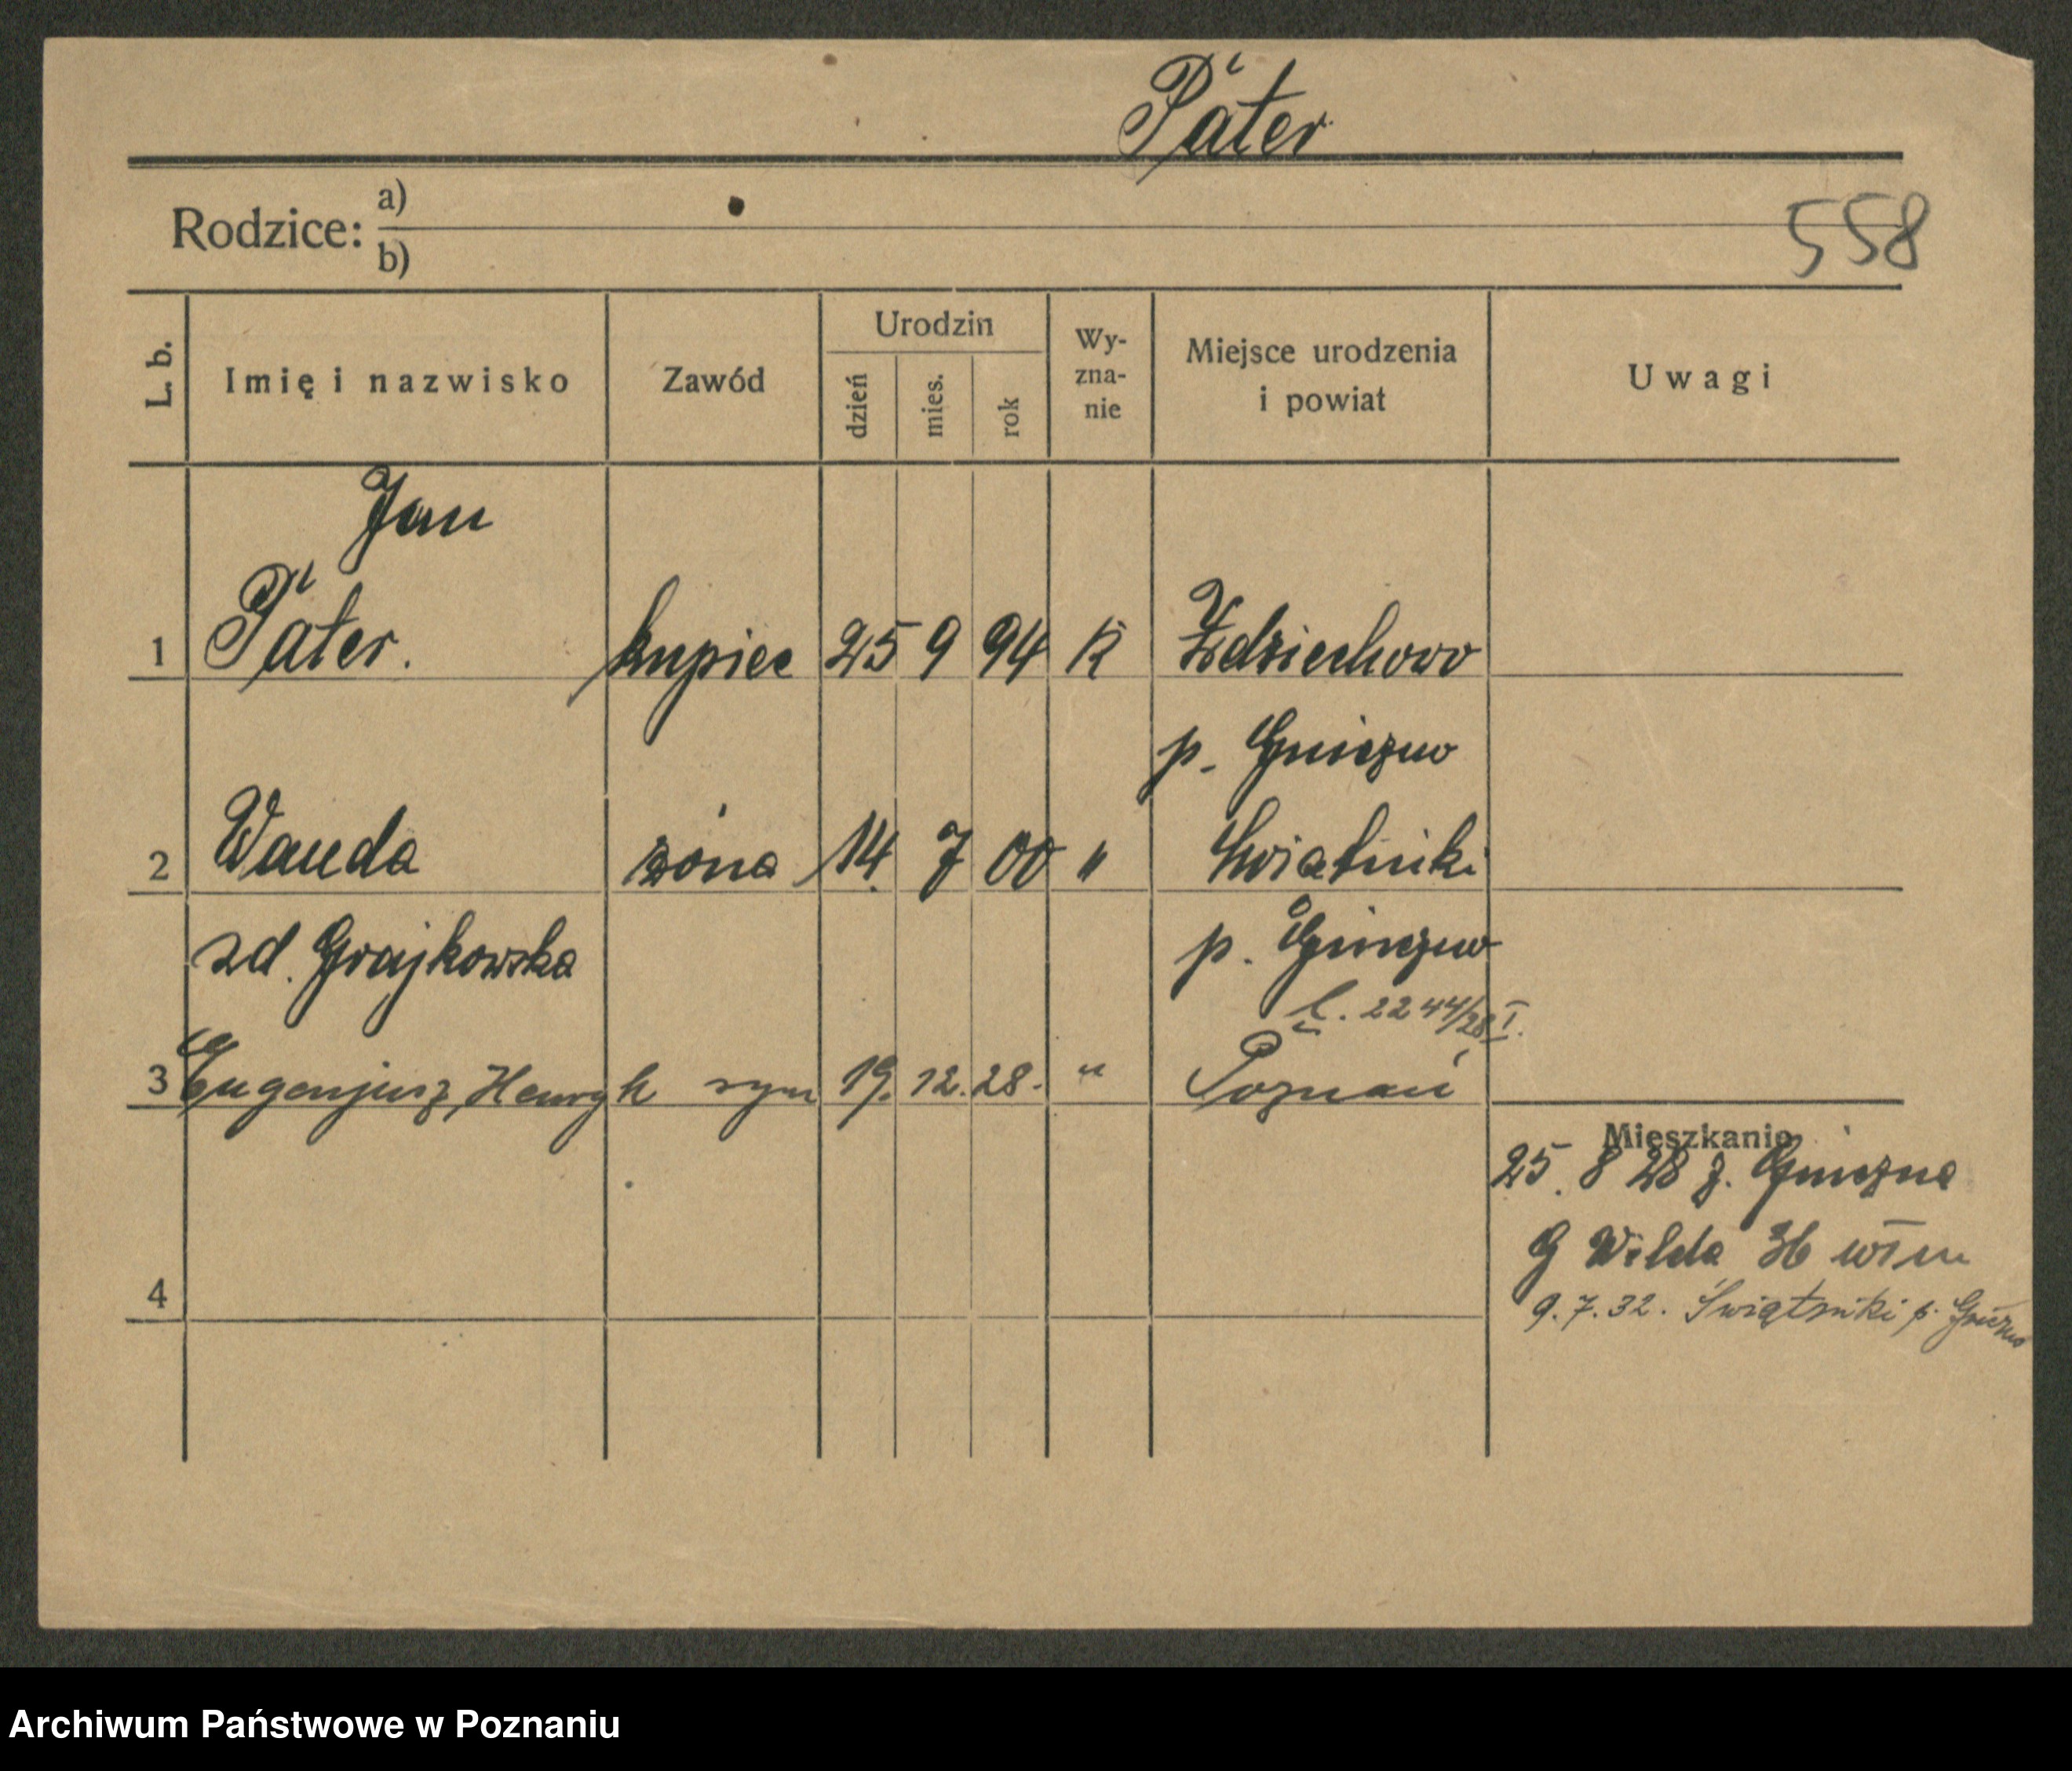 Pater
Rodzice: a)
b)
558
L. b. Imię i nazwisko Zawód Urodzin dzień mies. rok Wy-zna-nie Miejsce urodzenia i powiat Uwagi
Jan
1 Pater. kupiec 25 9 94 K Zdziechowo
p. Gniezno
2 Wanda żona 14. 7 00 " Swiatniki
zd. Grajkowska p. Gniezno
l. 2244/28 I.
3 Eugenjusz, Henryk syn 19. 12. 28. " Poznań
Mieszkanie
25. 8 28 z. Gniezna
G Wilda 36
4
9.7.32. Świątniki p. Gniezno
Archiwum Państwowe w Poznaniu